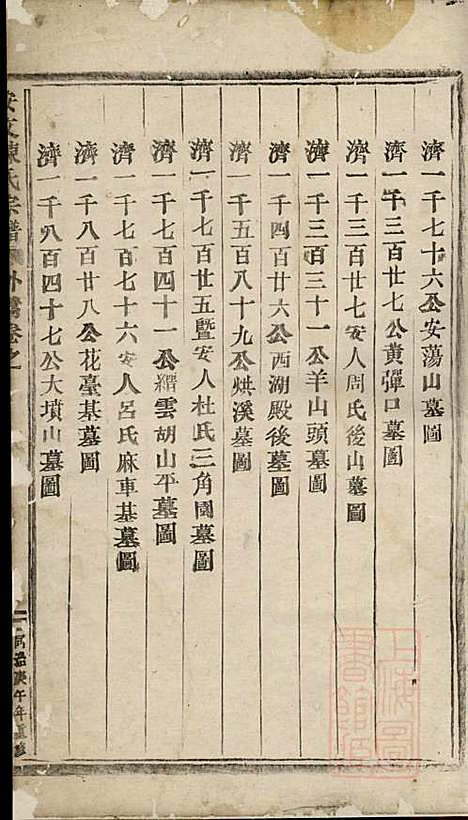 濟一千七十六公安蕩山墓圖
濟一千三百廿七公黃彈口墓圖
濟一千三百廿七安人周氏後山墓圖
濟一千三百三十一公羊山頭墓圖
濟一千四百廿六公西湖殿後墓圖
濟一千五百八十九公烘溪墓圖
濟一千七百廿五暨安人杜氏三角園墓圖
濟一千七百四十一公縉雲胡山平墓圖
濟一千七百七十六安人呂氏麻車基墓圖
濟一千八百廿八公花臺基墓圖
濟一千八百四十七公大墳山墓圖
安文陳氏宗譜 外篇卷之
民國庚午年重修
上海圖書館藏